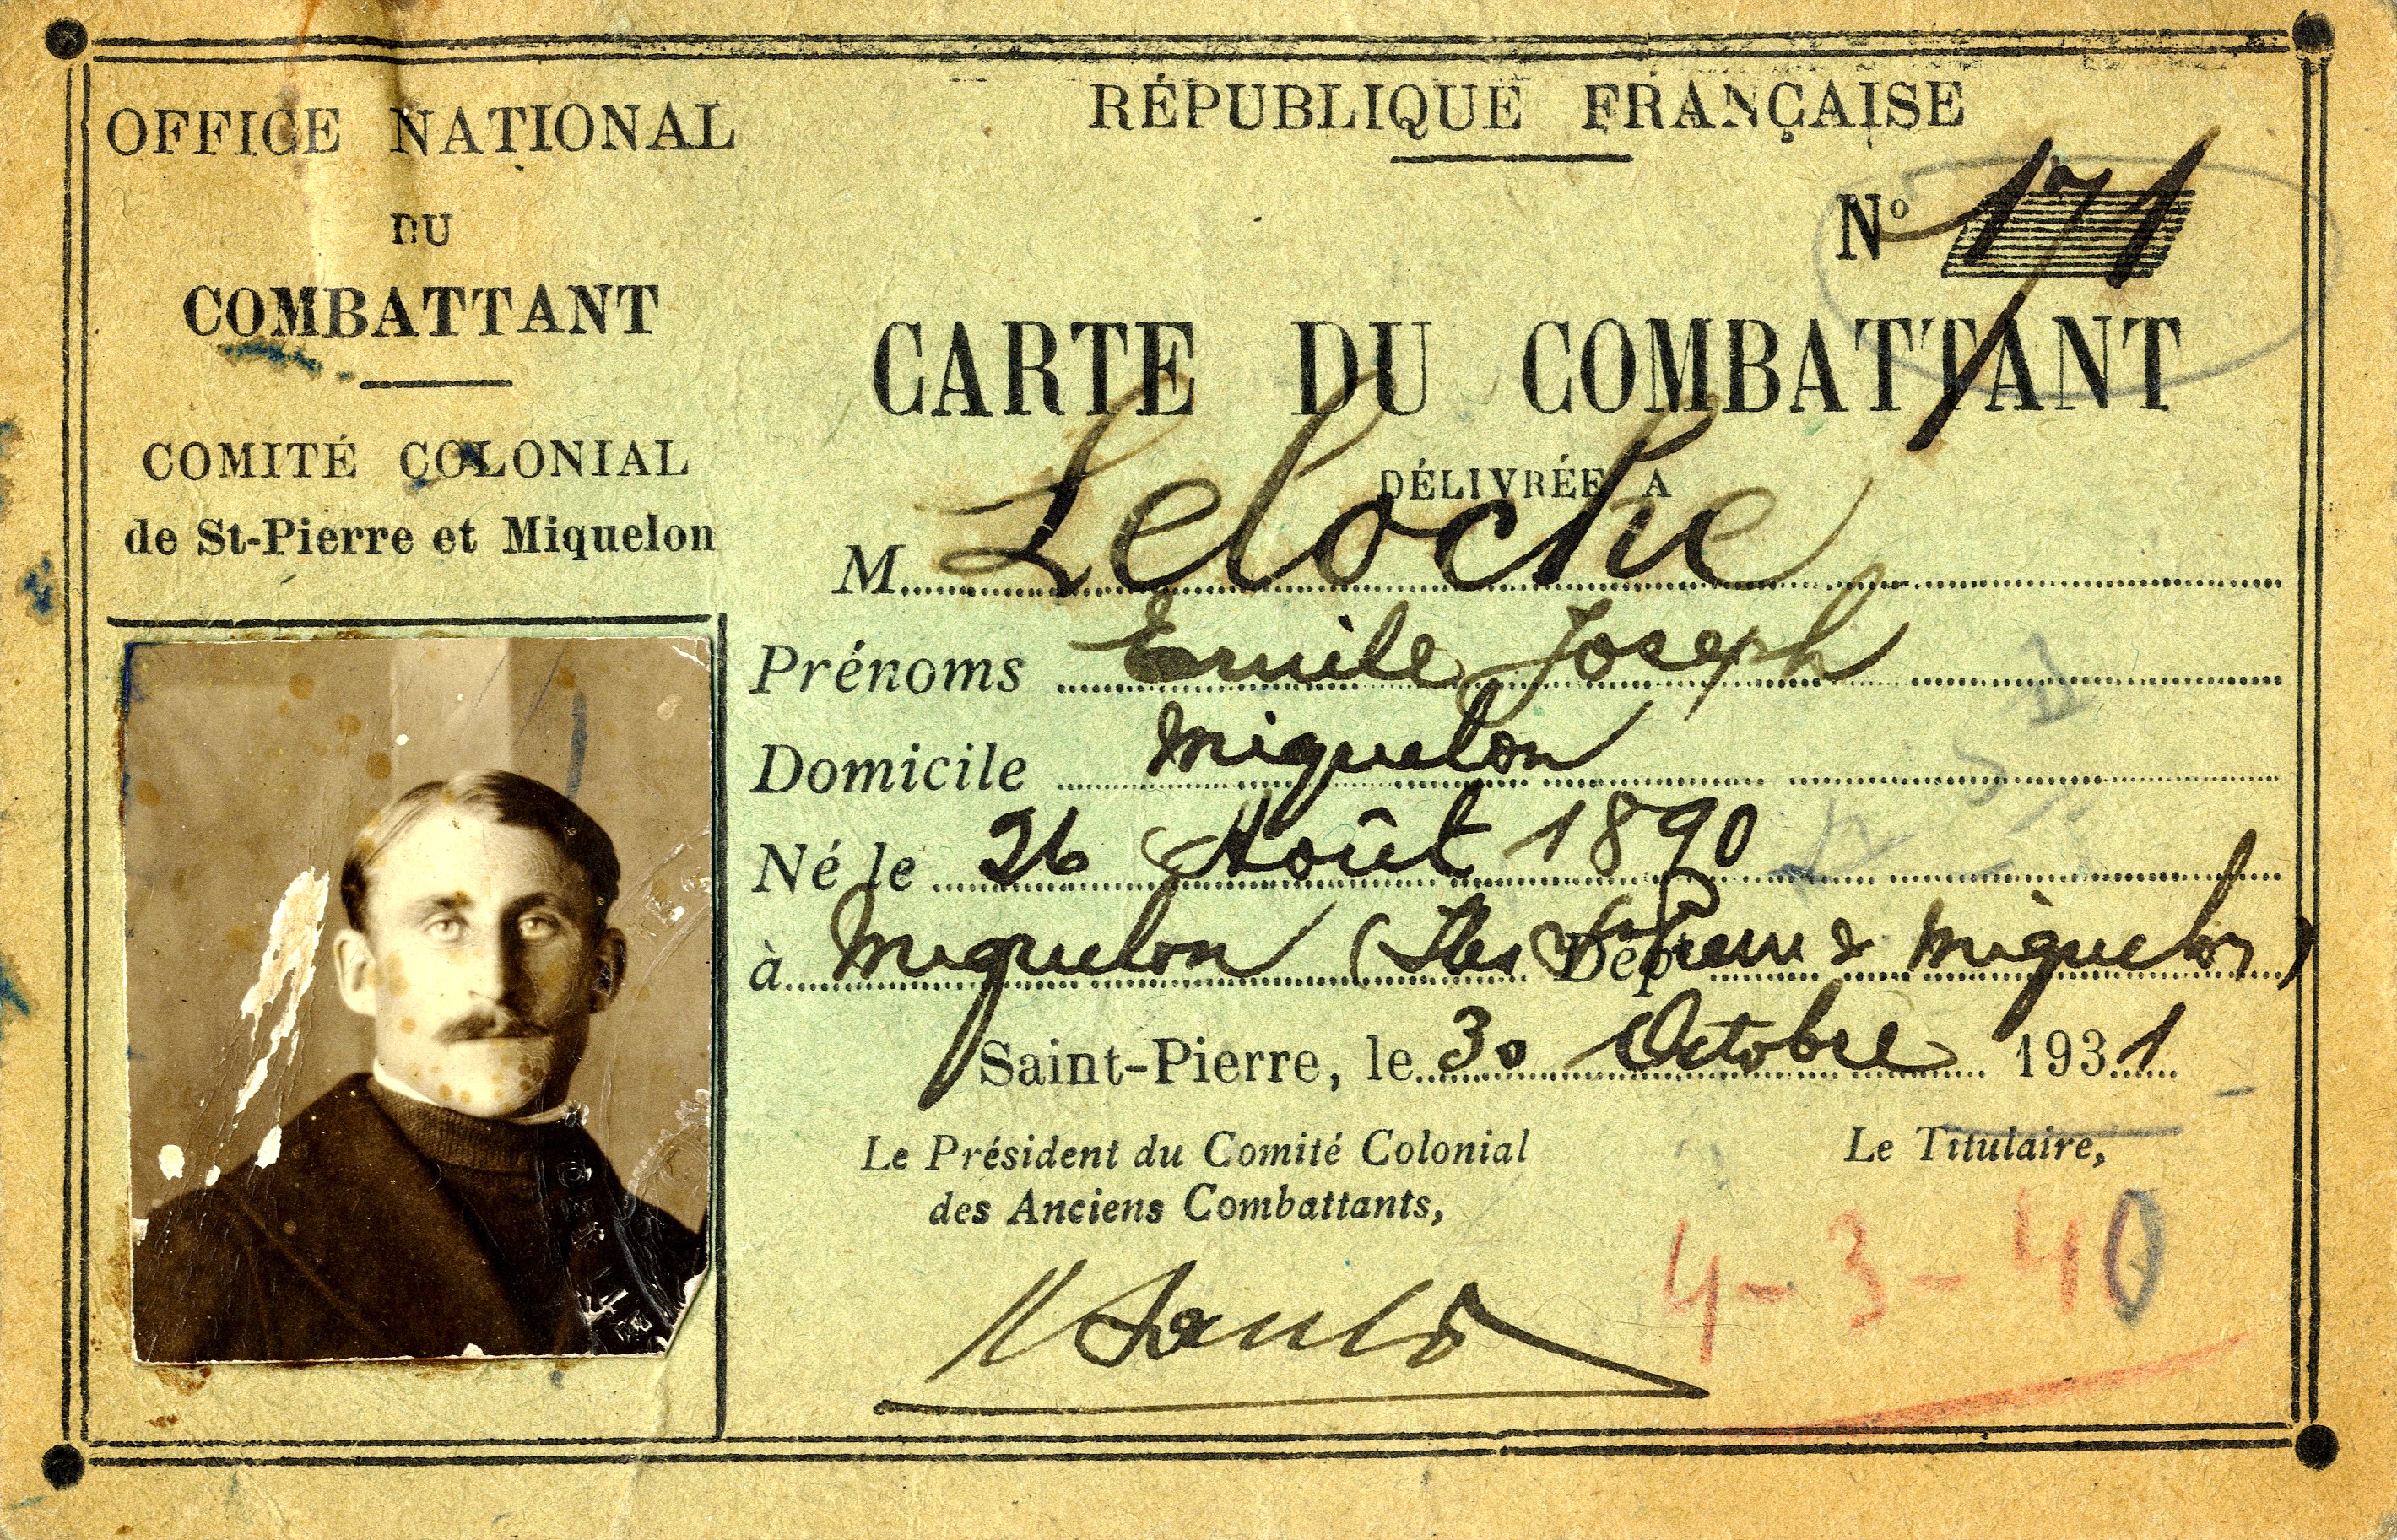 OFFICE NATIONAL
DU
COMBATTANT
COMITÉ COLONIAL
de St-Pierre et Miquelon
RÉPUBLIQUE FRANÇAISE
Nº 171
CARTE DU COMBATTANT
DÉLIVRÉE A
M. Leloche
Prénoms Emile Joseph
Domicile Miquelon
Né le 26 Août 1890
à Miquelon (Iles St Pierre & Miquelon)
Saint-Pierre, le 30 Octobre 1931
Le Président du Comité Colonial
des Anciens Combattants,
Le Titulaire,
4-3-40